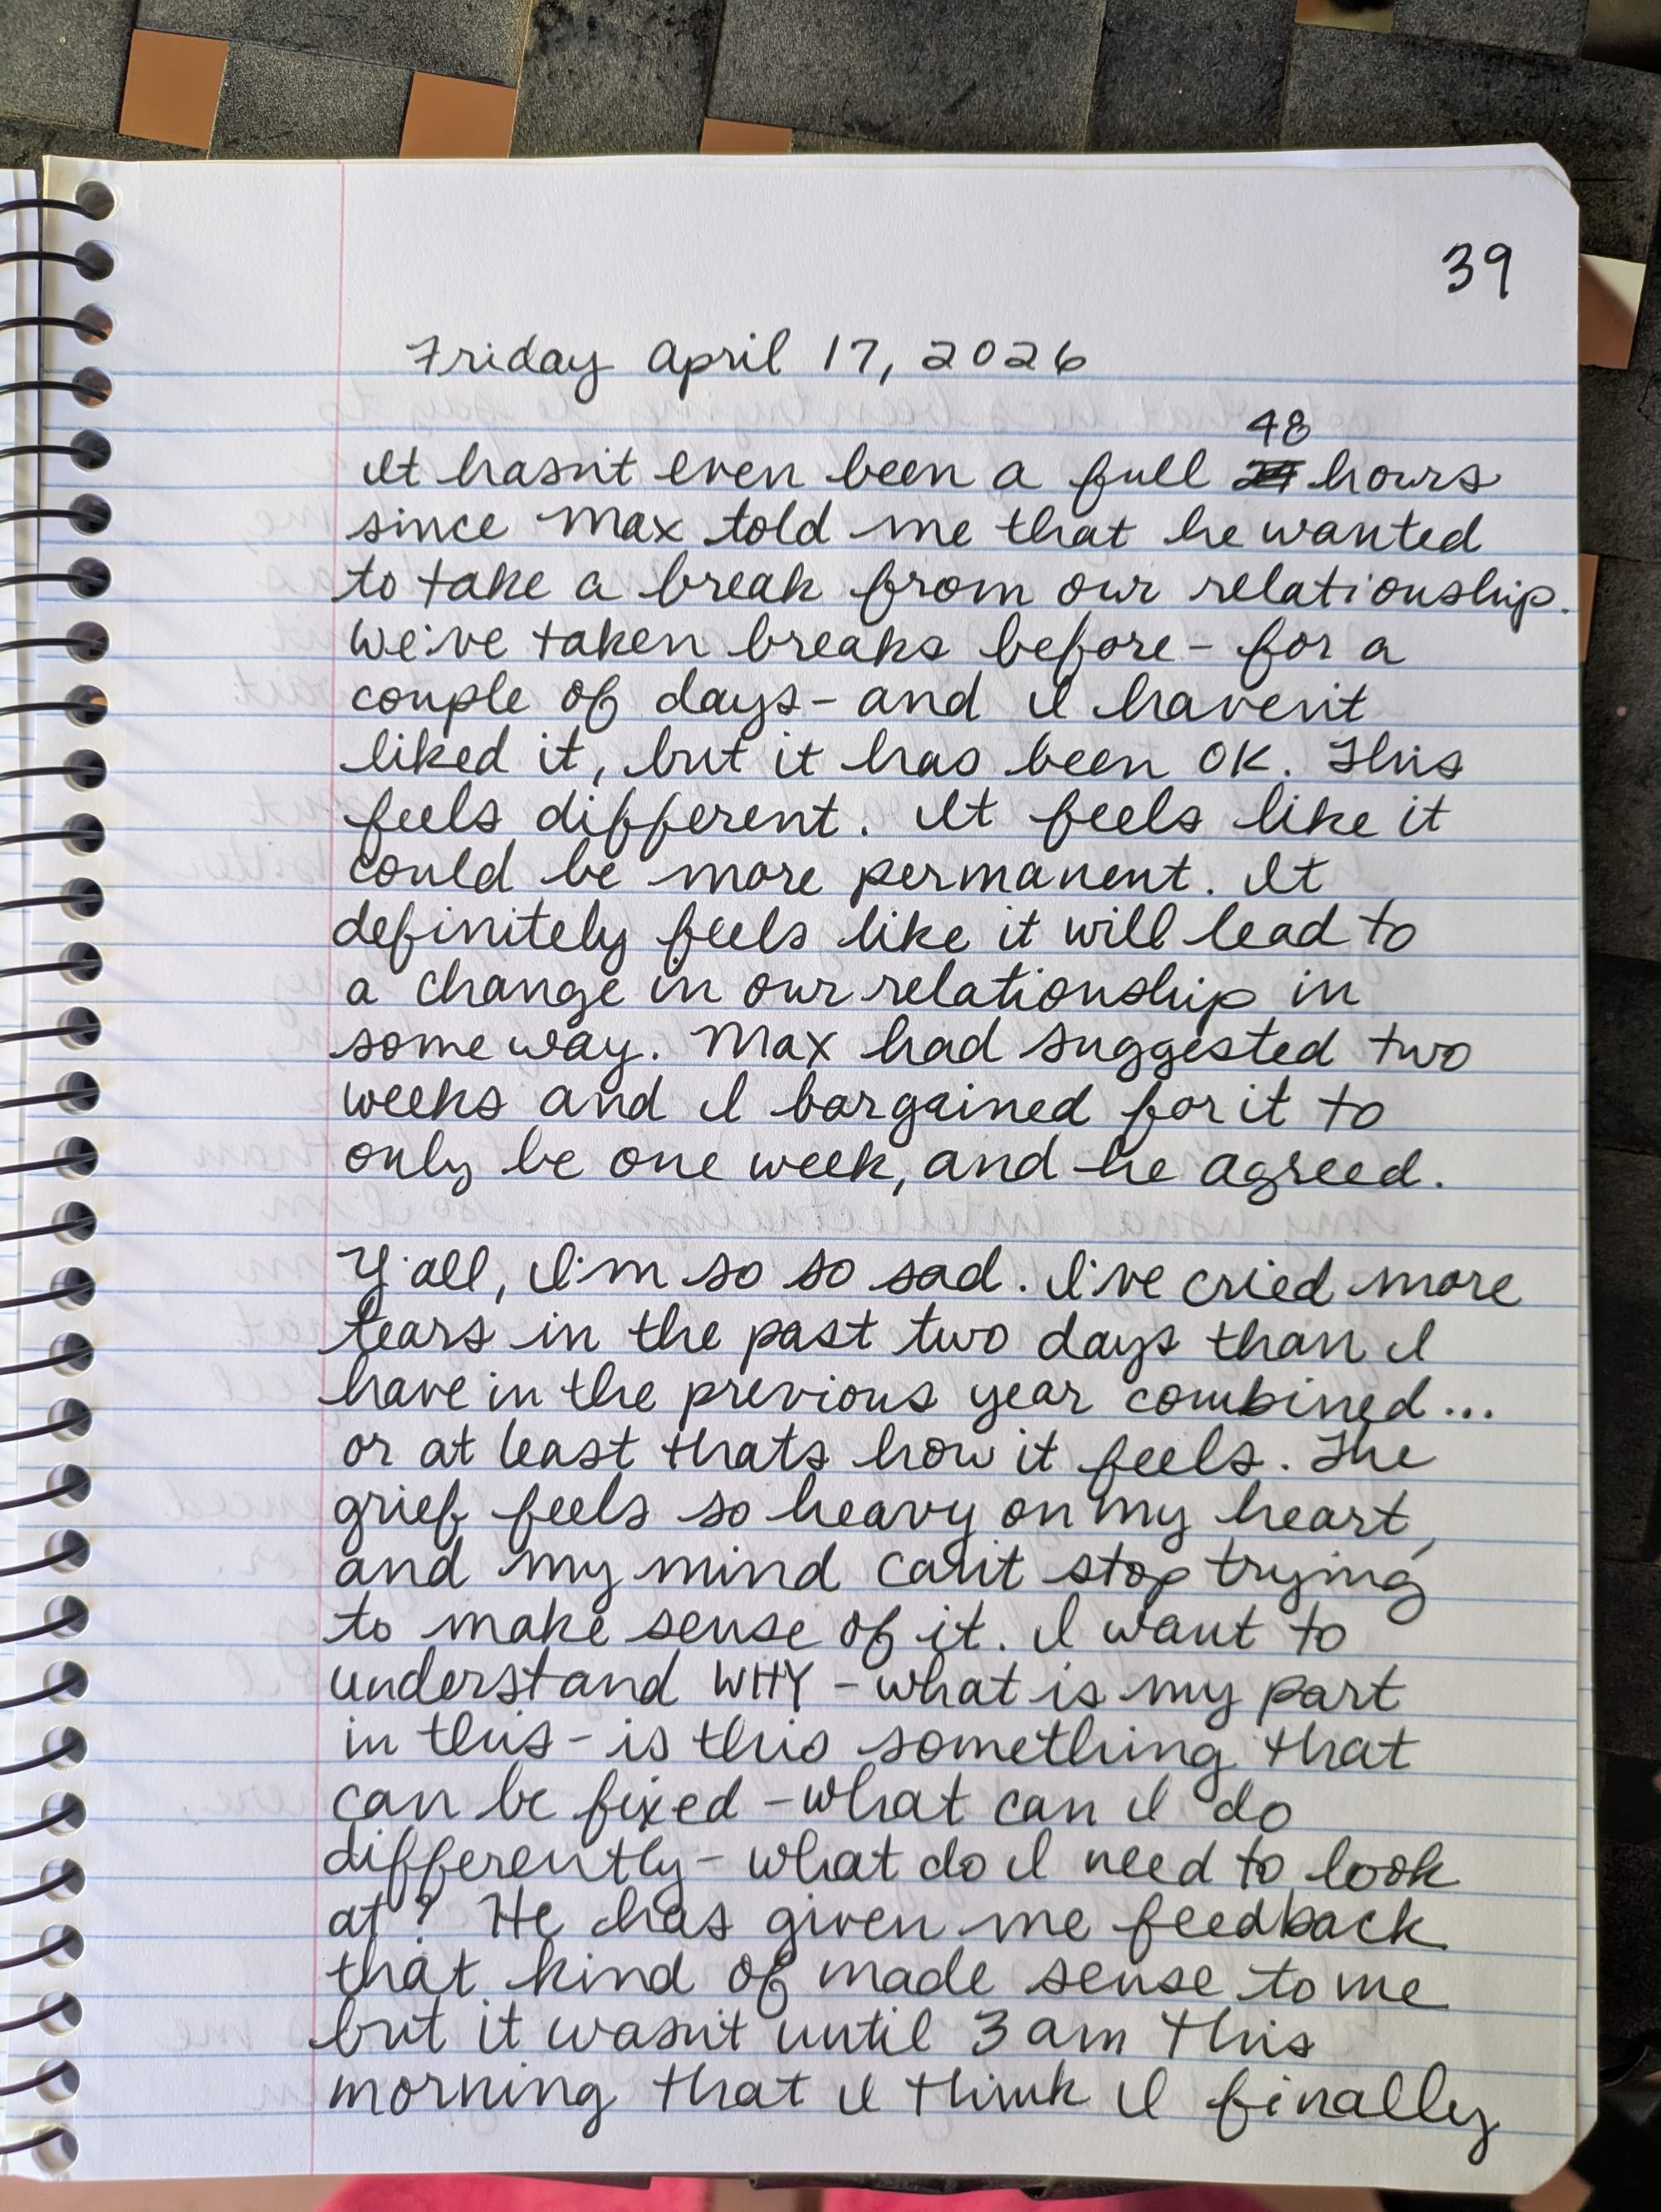 39
Friday April 17, 2026
48
It hasn't even been a full 24 hours
since Max told me that he wanted
to take a break from our relationship.
We've taken breaks before - for a
couple of days - and I haven't
liked it, but it has been OK. This
feels different. It feels like it
could be more permanent. It
definitely feels like it will lead to
a change in our relationship in
some way. Max had suggested two
weeks and I bargained for it to
only be one week, and he agreed.
Y'all, I'm so so sad. I've cried more
tears in the past two days than I
have in the previous year combined...
or at least thats how it feels. The
grief feels so heavy on my heart,
and my mind can't stop trying
to make sense of it. I want to
understand WHY - what is my part
in this - is this something that
can be fixed - what can I do
differently - what do I need to look
at? He has given me feedback
that kind of made sense to me
but it wasn't until 3 am this
morning that I think I finally